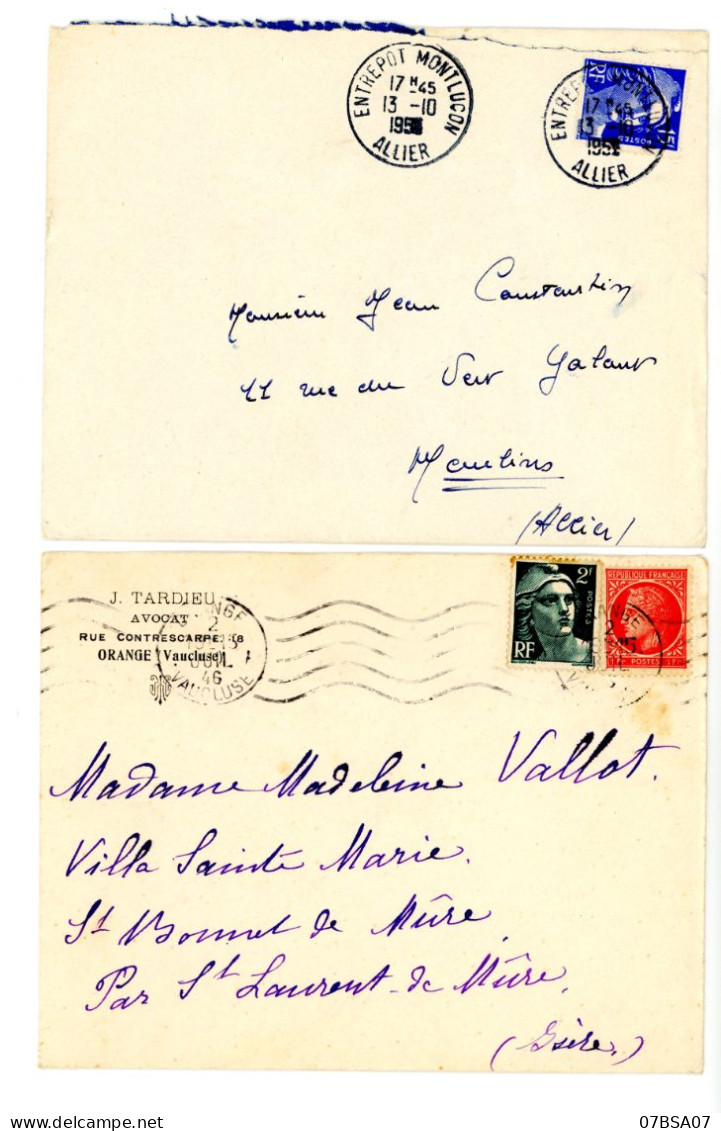 ENTREPOT MONTLUCON
17 H 45
13 -10
195
ALLIER
RF
15F
POSTES
ENTREPOT MONTLUCON
17 H 45
13 -10
195
ALLIER
Monsieur Jean Constantin
11 rue du Vert Galant
Moulins
(Allier)
J. TARDIEU
AVOCAT
RUE CONTRESCARPE, 18
ORANGE (Vaucluse)
ORANGE
2
JUIL
46
VAUCLUSE
2F
POSTES
RF
REPUBLIQUE FRANÇAISE
1F POSTES 1F
Madame Madeleine Vallot.
Villa Sainte Marie.
St Bonnet de Mûre
Par St Laurent-de Mûre.
(Isère.)
07BSA07